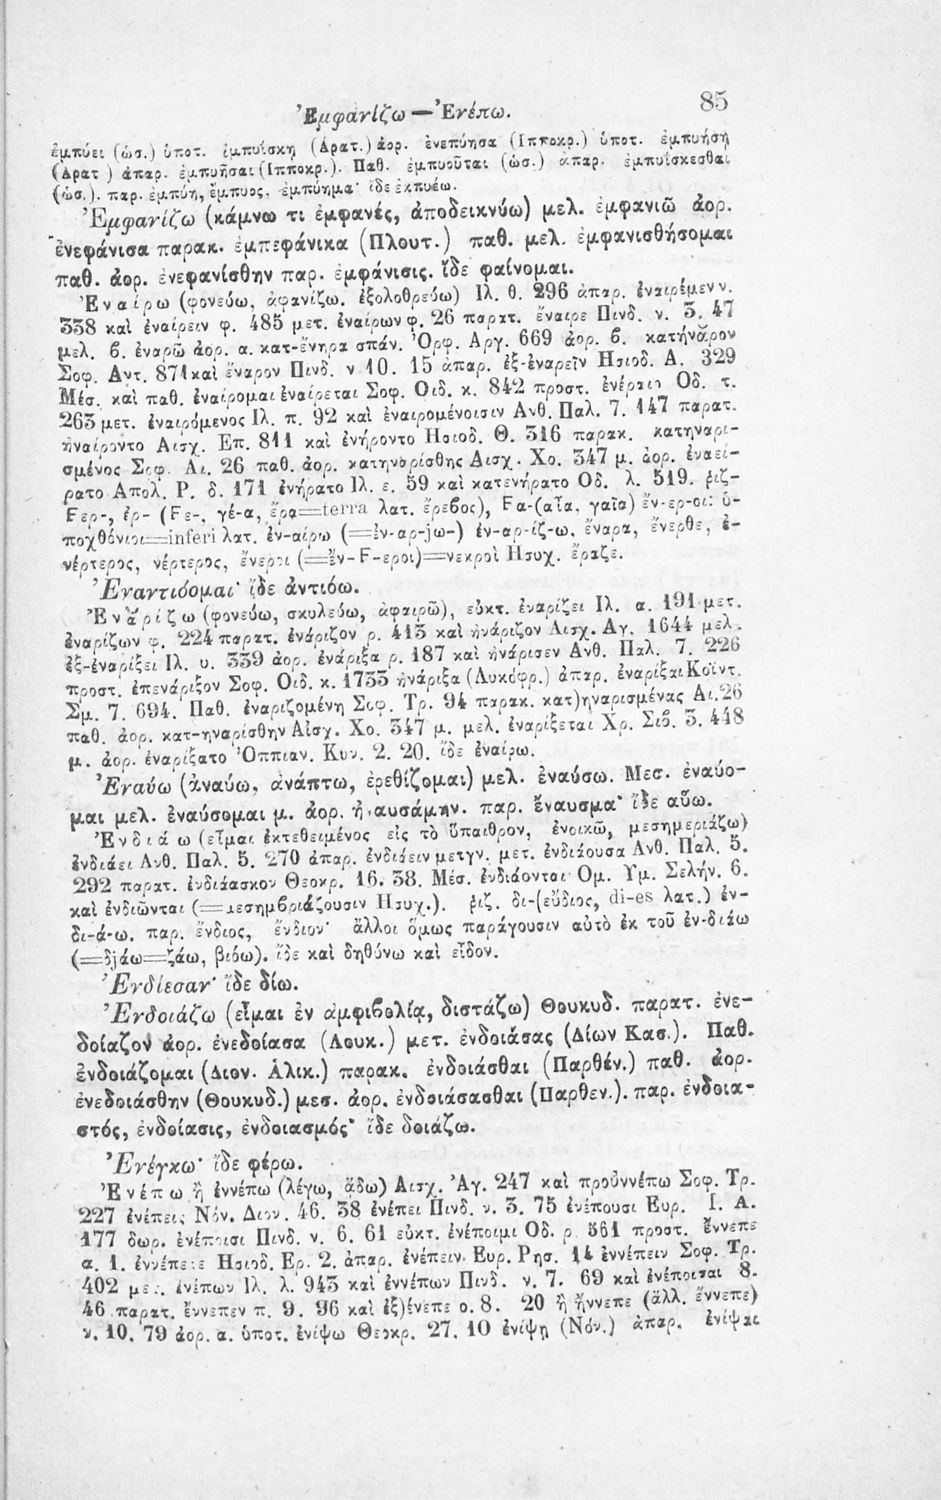 Ἐμφανίζω — Ἐνέπω. 85
ἐμπύει (ὡσ.) ὑποτ. ἐμπυΐσκῃ (Ἀρατ.) ἀορ. ἐνεπύησα (Ἱπποκρ.) ὑποτ. ἐμπυήσῃ
(Ἀρατ ) ἀπαρ. ἐμπυῆσαι (Ἱπποκρ.). Παθ. ἐμπυοῦται (ὡσ.) ἀπαρ. ἐμπυΐσκεσθαι
(ὡσ.). παρ. ἐμπύη, ἔμπυος, ἐμπύημα· ἴδε ἐκπυέω.
Ἐμφανίζω (κάμνω τι ἐμφανές, ἀποδεικνύω) μελ. ἐμφανιῶ ἀορ.
ἐνεφάνισα παρακ. ἐμπεφάνικα (Πλουτ.) παθ. μελ. ἐμφανισθήσομαι
παθ. ἀορ. ἐνεφανίσθην παρ. ἐμφάνισις. ἴδε φαίνομαι.
Ἐναίρω (φονεύω, ἀφανίζω, ἐξολοθρεύω) Ιλ. θ. 296 ἀπαρ. ἐναιρέμεν ν.
338 καὶ ἐναίρειν φ. 485 μετ. ἐναίρων φ. 26 παρατ. ἔναιρε Πινδ. ν. 3. 47
μελ. β. ἐναρῶ ἀορ. α. κατ-ἔνηρα σπάν. Ὀρφ. Αργ. 669 ἀορ. β. κατήνᾰρον
Σοφ. Αντ. 871 καὶ ἔναρον Πινδ. ν 10. 15 ἀπαρ. ἐξ-ἐναρεῖν Ησιοδ. Α. 329
Μέσ. καὶ παθ. ἐναίρομαι ἐναίρεται Σοφ. Οιδ. κ. 842 προστ. Οδ. τ.
263 μετ. ἐναιρόμενος Ιλ. π. 92 καὶ ἐναιρομένοισιν Ανθ. Παλ. 7. 147 παρατ.
ἠναίροντο Αισχ. Επ. 811 καὶ ἐνήροντο Ησιοδ. Θ. 316 παρακ. κατηναρι-
σμένος Σοφ. Αι. 26 παθ. ἀορ. κατηναρίσθης Αισχ. Χο. 347 μ. ἀορ. ἐναεί-
ρατο Απολ. Ρ. δ. 171 ἐνήρατο Ιλ. ε. 59 καὶ κατενήρατο Οδ. λ. 519. ῥιζ-
Fερ-, ἐρ- (Fε-, γέ-α, ἔρα=terra λατ. ἔρεβος), Fα-(αἶα, γαῖα) ἔν-ερ-οι: ὑ-
ποχθόνιοι=inferi λατ. ἐν-αίρω (=ἐν-αρ-jω-) ἐν-αρ-ίζ-ω, ἔναρα, ἔνερθε, ἐ-
νέρτερος, νέρτερος, ἔνεροι (=ἔν-F-εροι)=νεκροὶ Ησυχ. ἔραζε.
Ἐναντιόομαι· ἴδε ἀντιόω.
Ἐνᾰρίζω (φονεύω, σκυλεύω, ἀφαιρῶ), εὐκτ. ἐναρίζει Ιλ. α. 191 μετ.
ἐναρίζων φ. 224 παρατ. ἐνάριζον ρ. 413 καὶ ἠνάριζον Αισχ. Αγ. 1644 μελ.
ἐξ-ἐναρίξει Ιλ. υ. 339 ἀορ. ἐνάριξα ρ. 187 καὶ ἠνάρισεν Ανθ. Παλ. 7. 226
προστ. ἐπενάριξον Σοφ. Οιδ. κ. 1733 ἠνάριξα (Λυκόφρ.) ἀπαρ. ἐναρίξαι Κοΐντ.
Σμ. 7. 694. Παθ. ἐναριζομένη Σοφ. Τρ. 94 παρακ. κατ)ηναρισμένας Αι. 26
παθ. ἀορ. κατ-ηναρίσθην Αἰσχ. Χο. 347 μ. μελ. ἐναρίξεται Χρ. Σιβ. 3. 448
μ. ἀορ. ἐναρίξατο Ὀππιαν. Κυν. 2. 20. ἴδε ἐναίρω.
Ἐναύω (ἀναύω, ἀνάπτω, ἐρεθίζομαι) μελ. ἐναύσω. Μεσ. ἐναύο-
μαι μελ. ἐναύσομαι μ. ἀορ. παρ. ἔναυσμα· ἴδε αὔω.
Ἐνδιάω (εἶμαι ἐκτεθειμένος εἰς τὸ ὕπαιθρον, ἐνοικῶ, μεσημεριάζω)
ἐνδιάει Ανθ. Παλ. 5. 270 ἀπαρ. ἐνδιάειν μετγν. μετ. ἐνδιάουσα Ανθ. Παλ. 5.
292 παρατ. ἐνδιάασκον Θεοκρ. 16. 38. Μέσ. ἐνδιάονται Ομ. Υμ. Σελήν. 6.
καὶ ἐνδιῶνται (=μεσημβριάζουσιν Ησυχ.). ῥιζ. δι-(εὔδιος, di-es λατ.) ἐν-
δι-ά-ω. παρ. ἔνδιος, ἔνδιον· ἄλλοι ὅμως παράγουσιν αὐτὸ ἐκ τοῦ ἐν-διάω
(=δjάω=ζάω, βιόω). ἴδε καὶ δηθύνω καὶ εἶδον.
Ἐνδίεσαν· ἴδε δίω.
Ἐνδοιάζω (εἶμαι ἐν ἀμφιβολίᾳ, διστάζω) Θουκυδ. παρατ. ἐνε-
δοίαζον ἀορ. ἐνεδοίασα (Λουκ.) μετ. ἐνδοιάσας (Δίων Κασ.). Παθ.
ἐνδοιάζομαι (Διον. Ἁλικ.) παρακ. ἐνδοιάσθαι (Παρθέν.) παθ. ἀορ.
ἐνεδοιάσθην (Θουκυδ.) μεσ. ἀορ. ἐνδοιάσασθαι (Παρθεν.). παρ. ἐνδοια-
στός, ἐνδοίασις, ἐνδοιασμός· ἴδε δοιάζω.
Ἐνέγκω· ἴδε φέρω.
Ἐνέπω ἢ ἐννέπω (λέγω, ᾄδω) Αισχ. Ἀγ. 247 καὶ προὐννέπω Σοφ. Τρ.
227 ἐνέπεις Νόν. Διον. 46. 38 ἐνέπει Πινδ. ν. 3. 75 ἐνέπουσι Ευρ. Ι. Α.
177 δωρ. ἐνέποισι Πινδ. ν. 6. 61 εὐκτ. ἐνέποιμι Οδ. ρ 561 προστ. ἔννεπε
α. 1. ἐννέπετε Ησιοδ. Ερ. 2. ἀπαρ. ἐνέπειν Ευρ. Ρησ. 14 ἐννέπειν Σοφ. Τρ.
402 μετ. ἐνέπων Ιλ. λ. 943 καὶ ἐννέπων Πινδ. ν. 7. 69 καὶ ἐνέποισαι 8.
46 παρατ. ἔννεπεν π. 9. 96 καὶ ἐξ)ένεπε ο. 8. 20 ἢ ἤννεπε (ἀλλ. ἔννεπε)
ν. 10. 79 ἀορ. α. ὑποτ. ἐνίψω Θεοκρ. 27. 10 ἐνίψῃ (Νόν.) ἀπαρ. ἐνίψαι